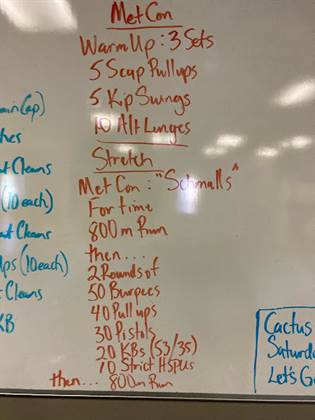 MetCon
Warm Up: 3 Sets
5 Scap Pullups
5 Kip Swings
10 Alt Lunges
Stretch
MetCon: "Schmalls"
For time
800m Run
then...
2 Rounds of
50 Burpees
40 Pull ups
30 Pistols
20 KBs (53/35)
10 Strict HSPUs
then... 800m Run
Cleans
(10 each)
Cleans
(10 each)
Cleans
KB
Cactus
Saturda
Let's G